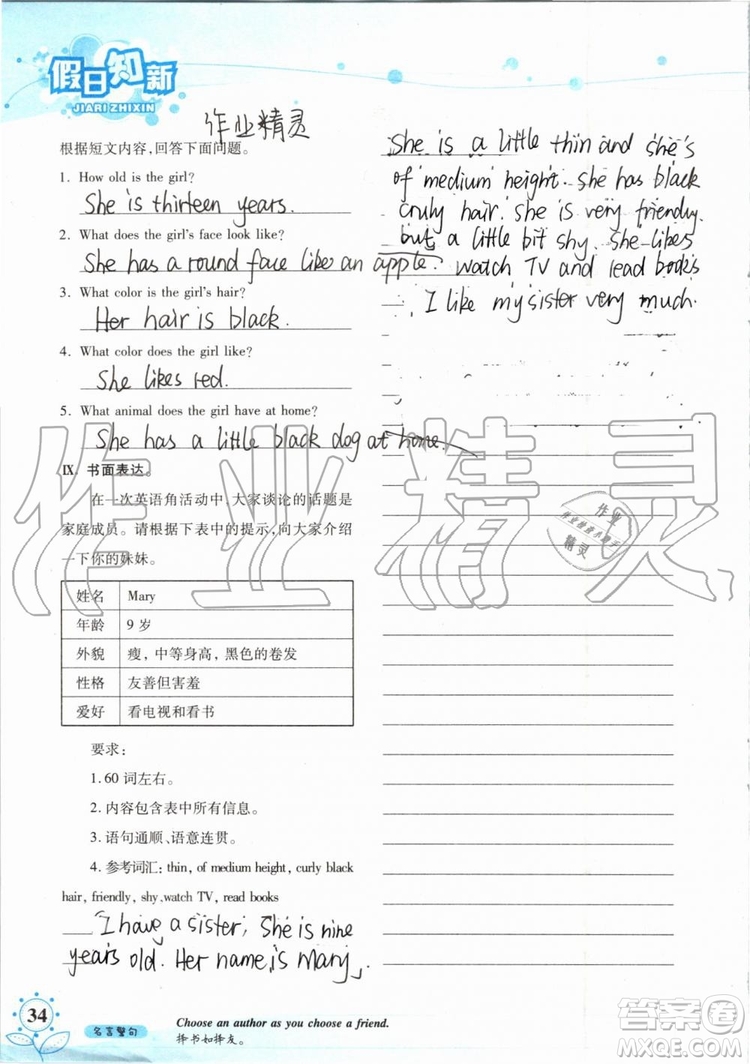 假日知新
JIARI ZHIXIN
作业精灵
根据短文内容,回答下面问题。
1. How old is the girl?
She is thirteen years.
2. What does the girl's face look like?
She has a round face likes an apple.
3. What color is the girl's hair?
Her hair is black.
4. What color does the girl like?
She likes red.
5. What animal does the girl have at home?
She has a little black dog at home.
Ⅸ. 书面表达。
在一次英语角活动中,大家谈论的话题是
家庭成员。请根据下表中的提示,向大家介绍
一下你的妹妹。
姓名 Mary
年龄 9 岁
外貌 瘦,中等身高,黑色的卷发
性格 友善但害羞
爱好 看电视和看书
要求:
1. 60 词左右。
2. 内容包含表中所有信息。
3. 语句通顺、语意连贯。
4. 参考词汇: thin, of medium height, curly black
hair, friendly, shy, watch TV, read books
I have a sister, She is nine
years old. Her name is Mary.
She is a little thin and she's
of medium height. She has black
cruly hair. she is very friendly.
but a little bit shy. she likes
watch TV and read books
I like my sister very much.
作业精灵
作业
精灵
34
名言警句
Choose an author as you choose a friend.
择书如择友。
答案圈
MXQE.COM